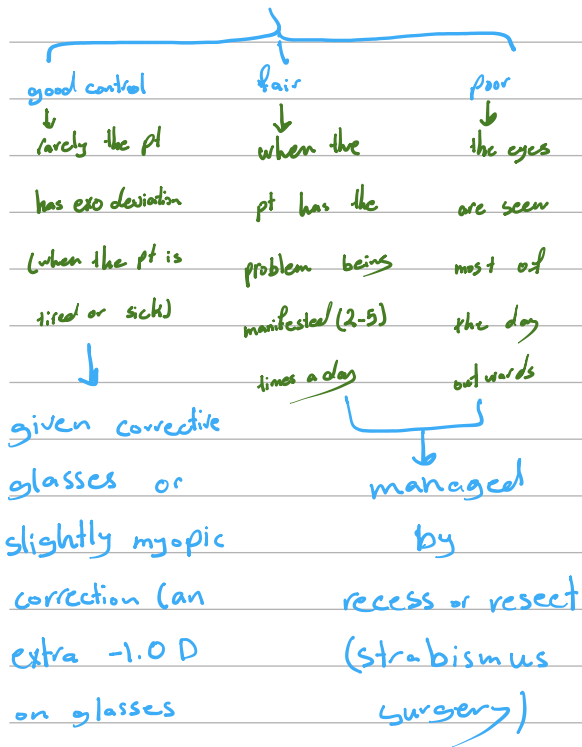 good control
rarely the pt
has exo deviation
(when the pt is
tired or sick)
given corrective
glasses or
slightly myopic
correction (an
extra -1.0 D
on glasses
fair
when the
pt has the
problem being
manifested (2-5)
times a day
poor
the eyes
are seen
most of
the day
outwards
managed
by
recess or resect
(strabismus
surgery)